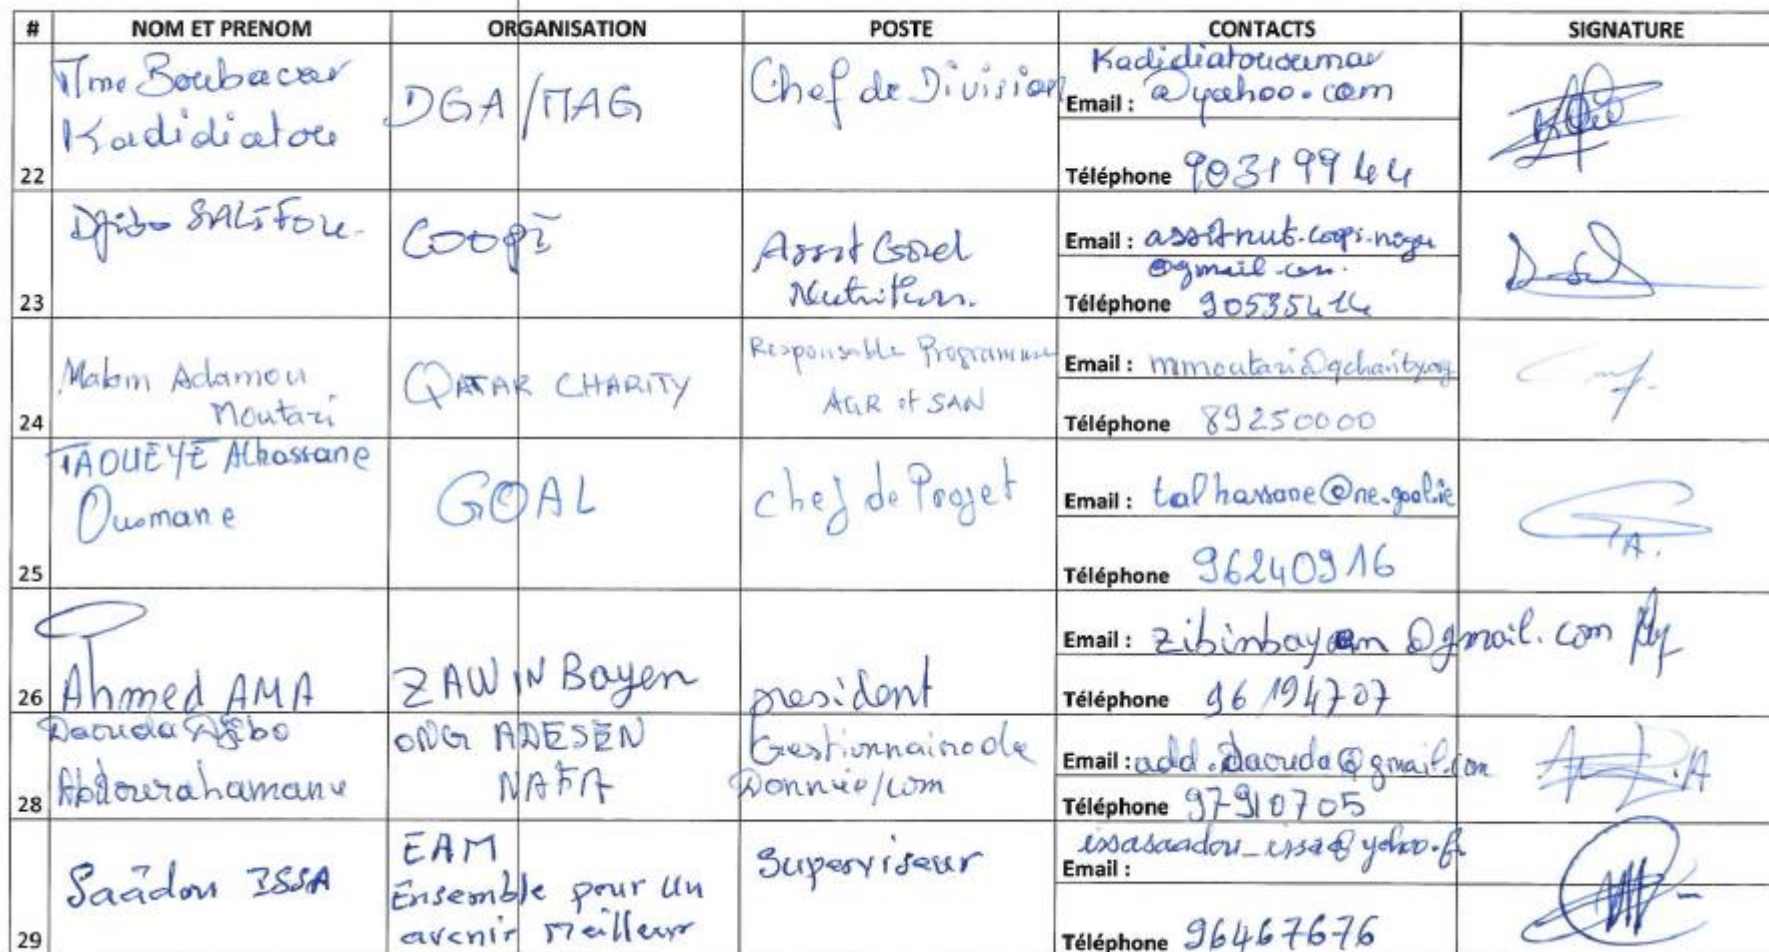 # NOM ET PRENOM ORGANISATION POSTE CONTACTS SIGNATURE
22 Mme Boubacar Kadidiatou DGA/MAG Chef de Division
Kadidiatououmar
Email : @yahoo.com
Téléphone 90319944
23 Djibo SALIFOU COOPI Assist Coord Nutrition.
Email : assitnut.coopi.niger
@gmail.com.
Téléphone 90535414
24 Malam Adamou Moutari QATAR CHARITY Responsable Programme AGR et SAN
Email : mmoutari@qcharity.org
Téléphone 89250000
25 TAOUEYE Alhassane Ousmane GOAL Chef de Projet
Email : talhassane@ne.goal.ie
Téléphone 96240916
26 Ahmed AMA ZAWIN Bayen president
Email : zibinbayan@gmail.com
Téléphone 96194707
28 Daouda Djibo Abdourahamane ONG ADESEN NAFA Gestionnaire de Donnée/com
Email : add.daouda@gmail.com
Téléphone 97910705
29 Saâdou ISSA EAM Ensemble pour un avenir Meilleur Superviseur
issasaadou_issa@yahoo.fr
Email :
Téléphone 96467676